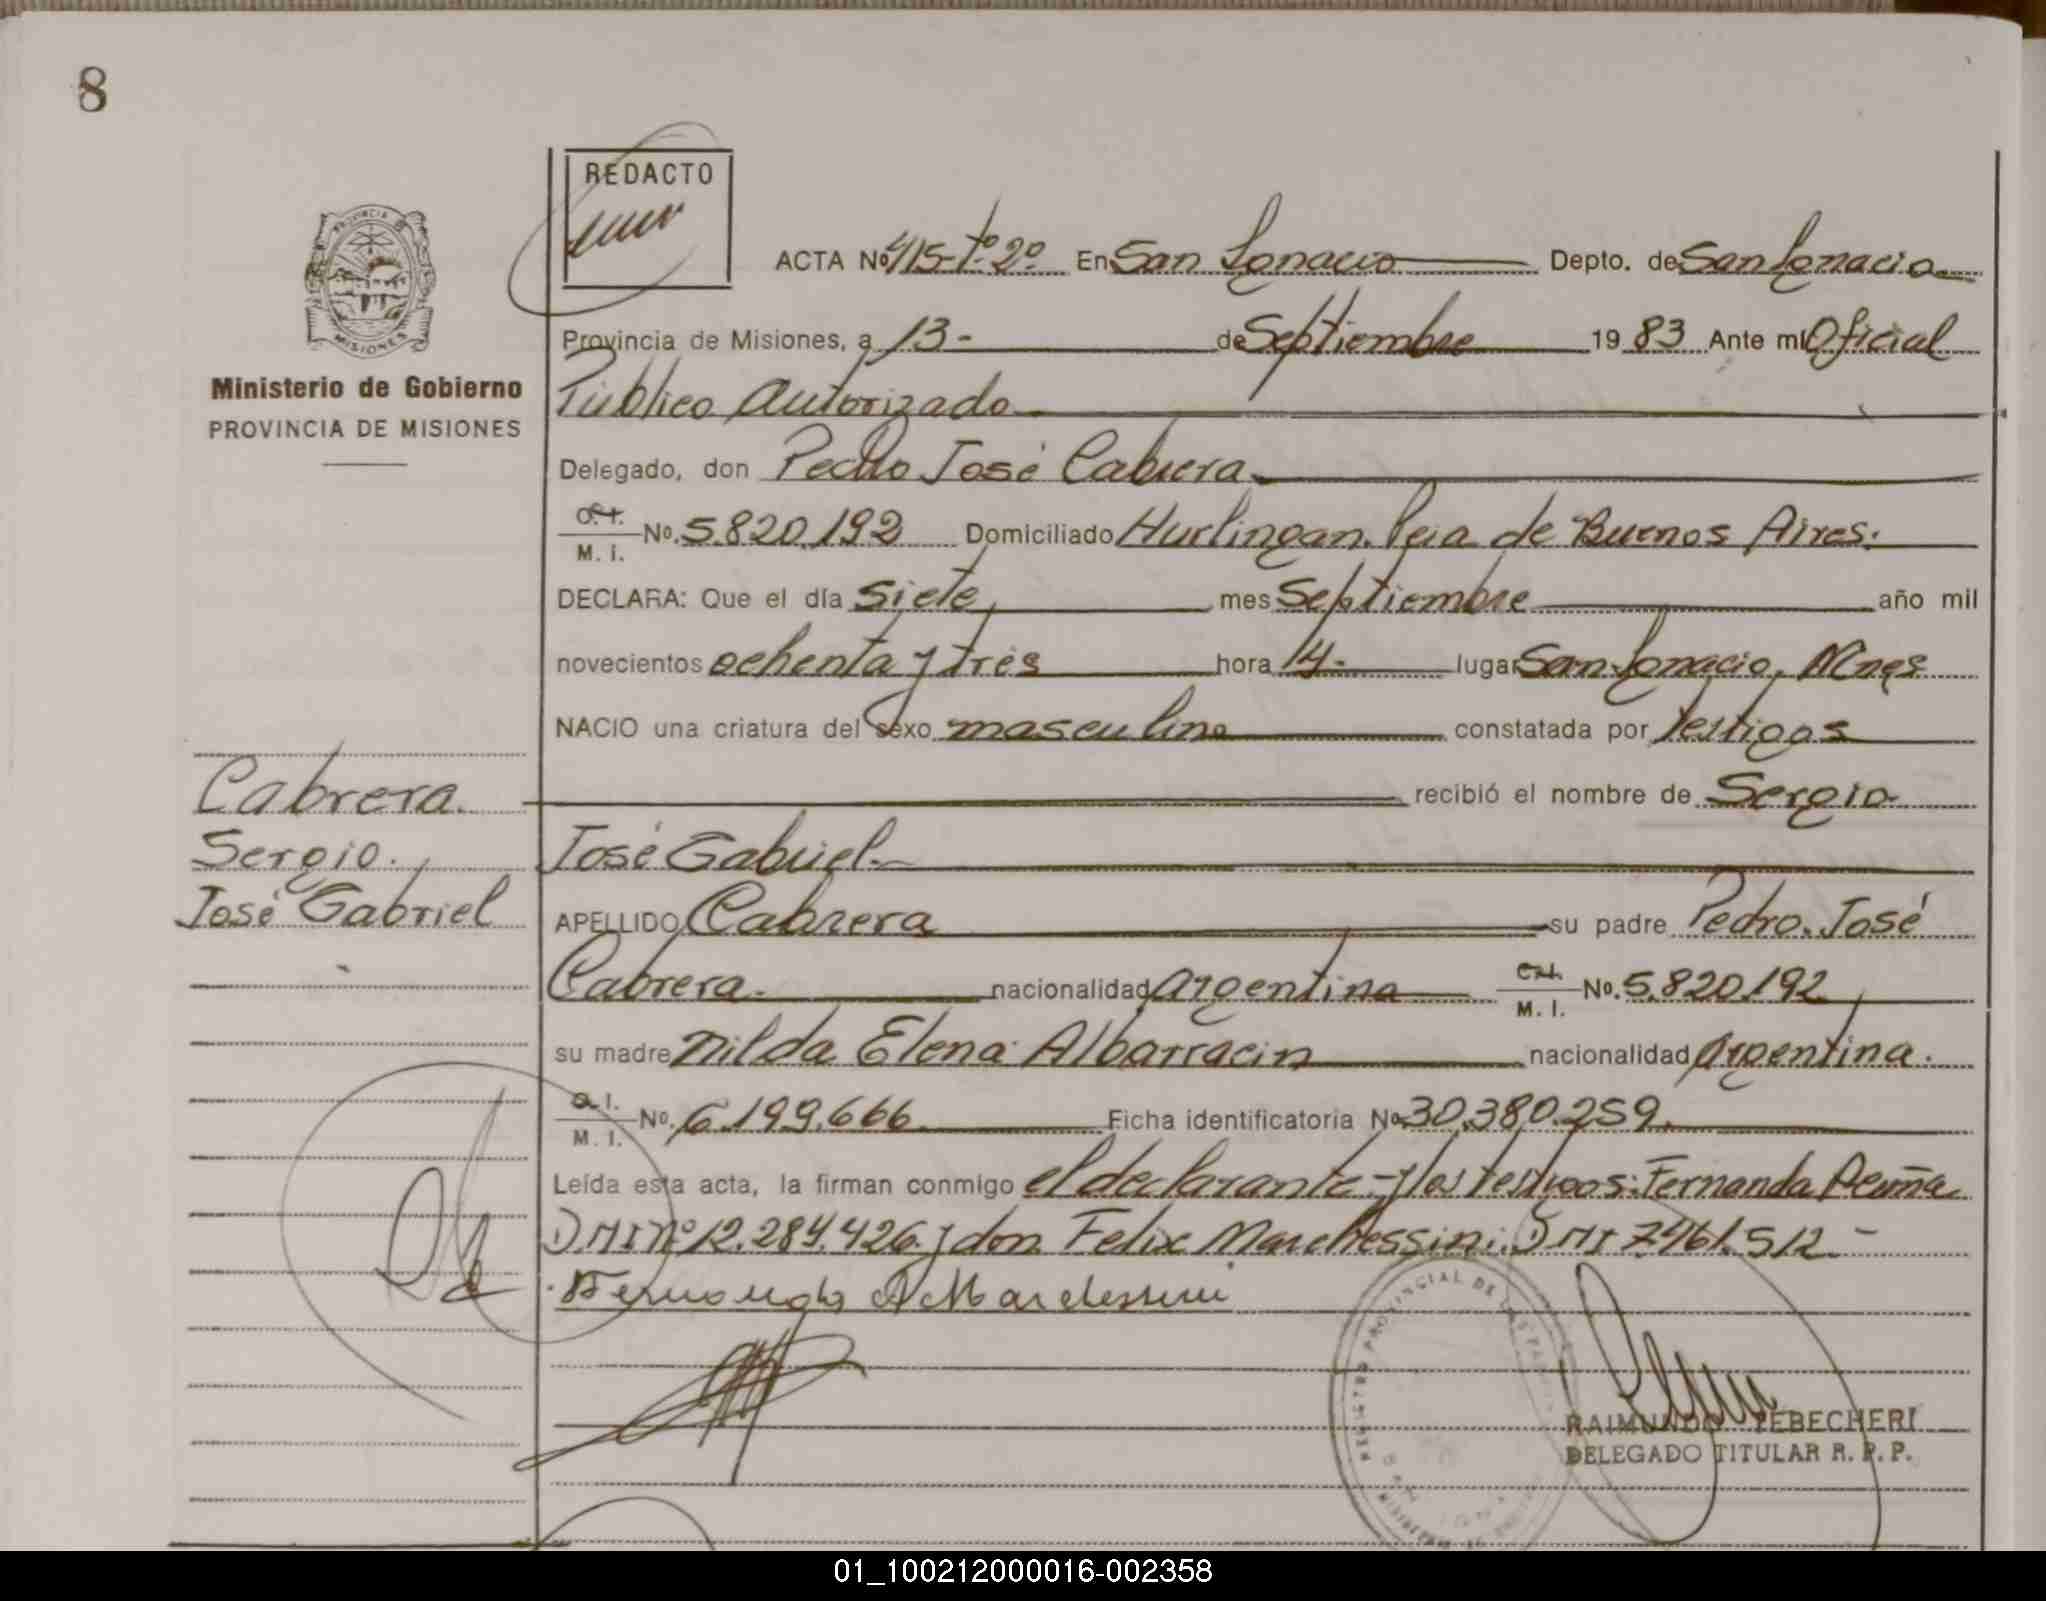 8
REDACTO
ACTA Nº 415-tº 2º En San Ignacio Depto. de San Ignacio
Provincia de Misiones, a 13- de Septiembre 1983 Ante mí Oficial
Ministerio de Gobierno
PROVINCIA DE MISIONES
Público Autorizado
Delegado, don Pedro José Cabrera
C.I. M. I. No. 5.820.192 Domiciliado Hurlingan. Pcia de Buenos Aires.
DECLARA: Que el día siete, mes Septiembre año mil
novecientos ochenta y tres hora 14.- lugar San Ignacio, Mnes
NACIO una criatura del sexo masculino constatada por testigos
recibió el nombre de Sergio
José Gabriel.-
Cabrera.
Sergio.
José Gabriel
APELLIDO Cabrera su padre Pedro. José
Cabrera. nacionalidad argentina C.I. M. I. No. 5.820.192
su madre Nilda Elena Albarracin nacionalidad argentina.
C.I. M. I. No. 6.199.666 Ficha identificatoria No 30.380.259.
Leída esta acta, la firman conmigo el declarante y los testigos: Fernanda
D.M.I Nº 12.284.426 y don Felix Marchessini. D M I 7.461.512.-
REGISTRO PROVINCIAL DE LAS
RAIMUNDO TEBECHERI
DELEGADO TITULAR R. P. P.
01_100212000016-002358